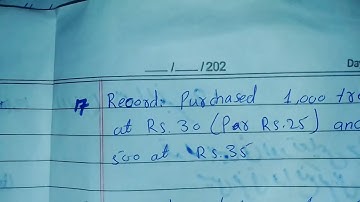 ___/___/202 Da
17 Record: Purchased 1,000 tre
at Rs. 30 (Par Rs.25) and
500 at Rs.35